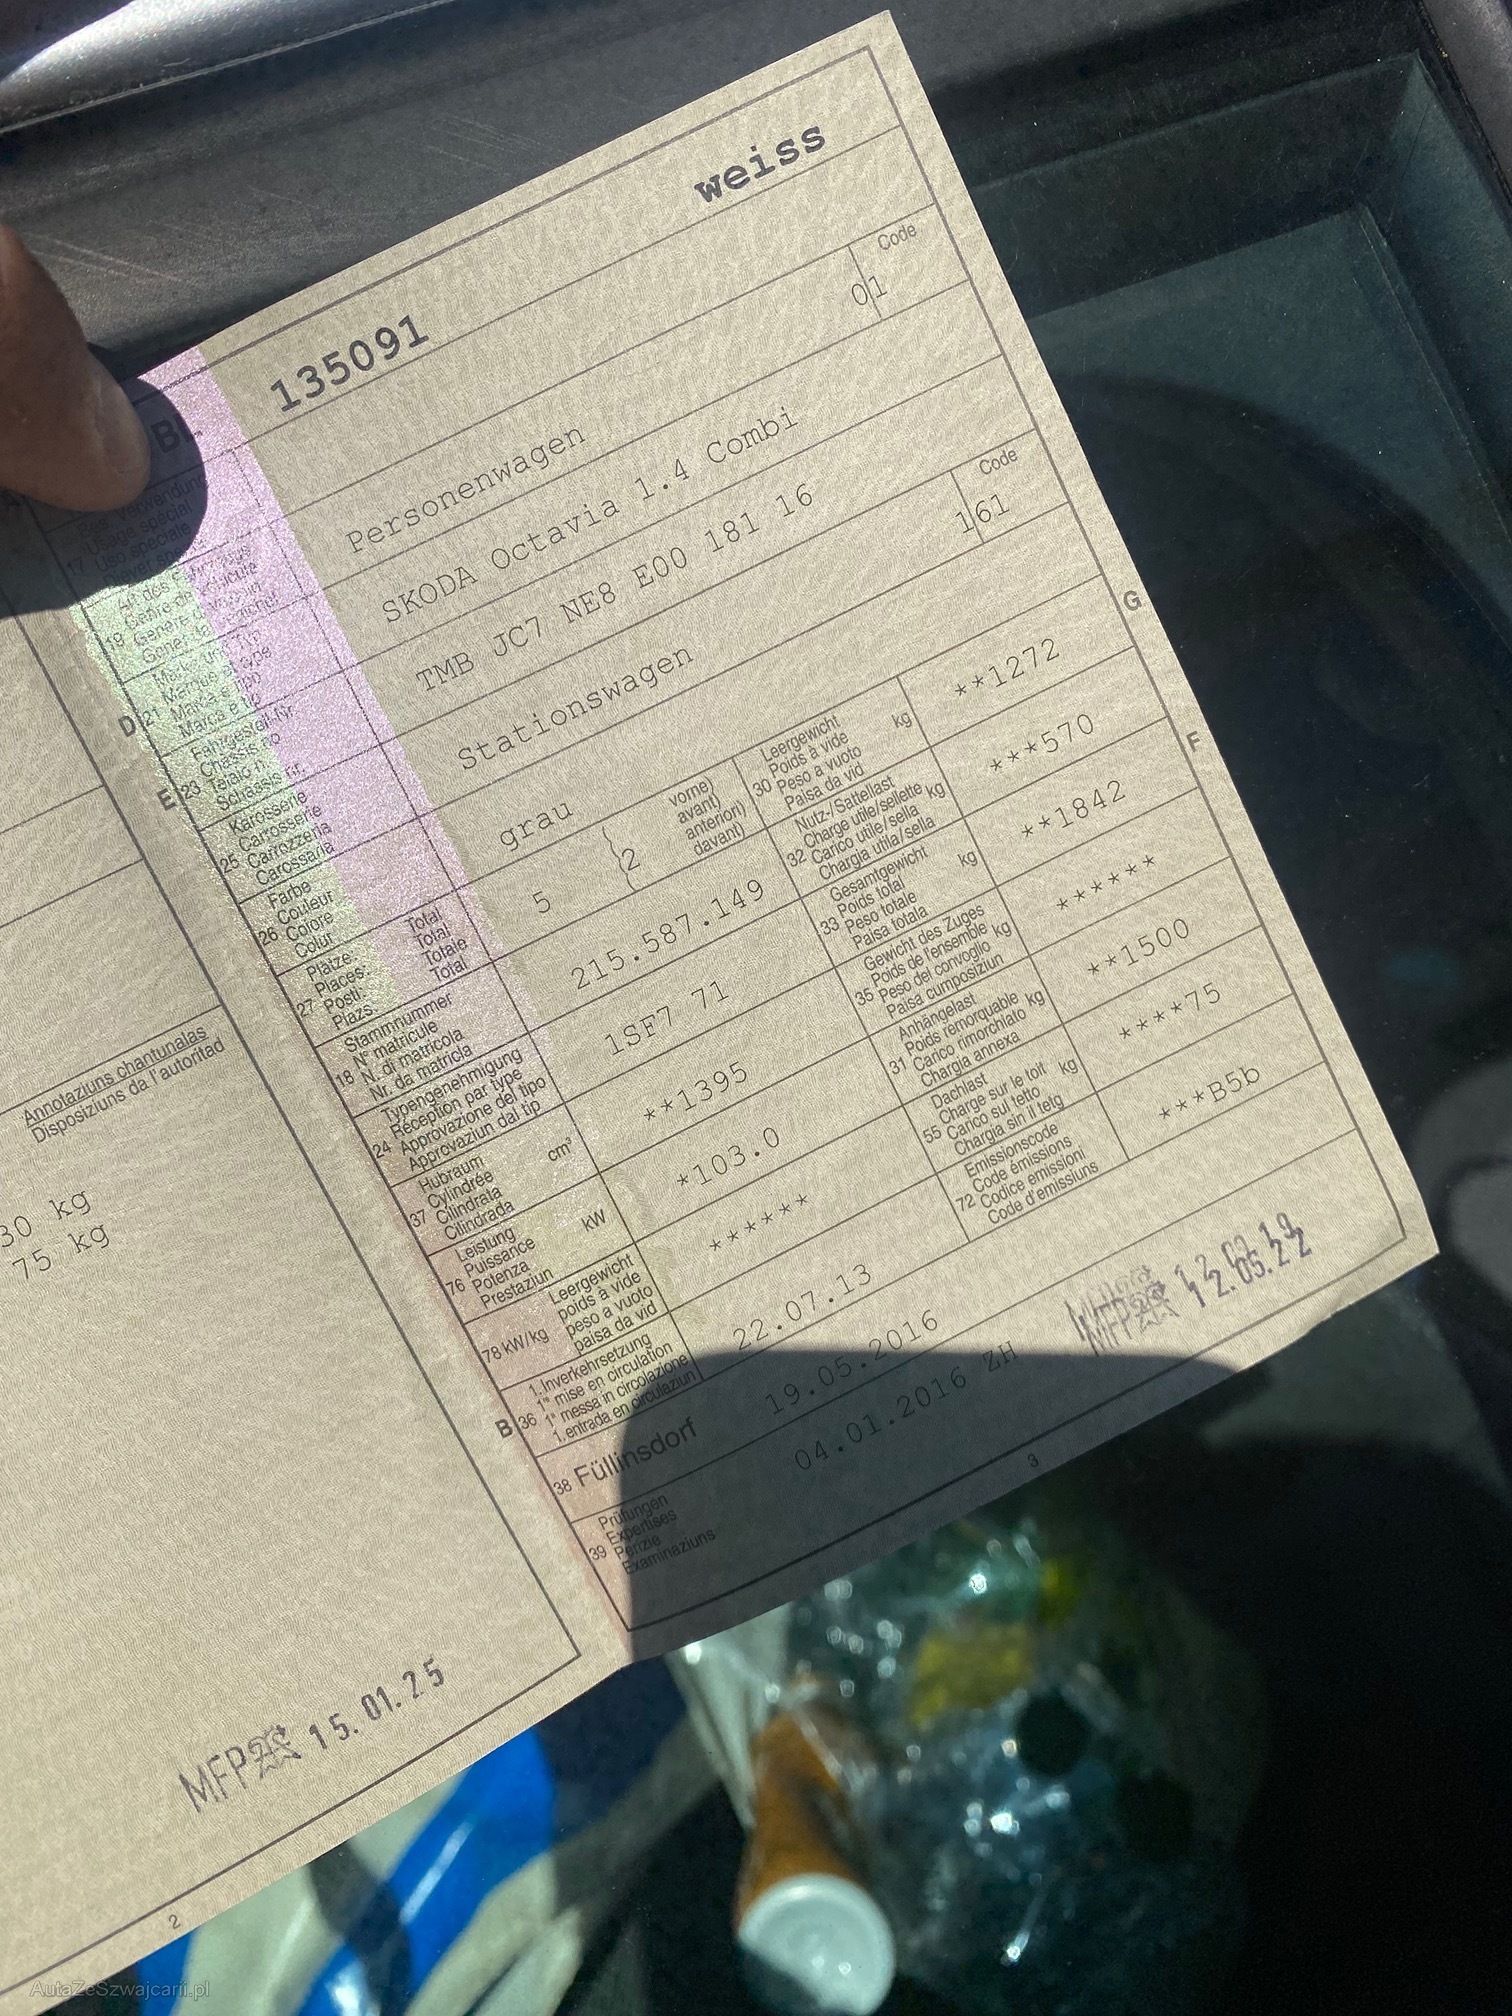 weiss
BL 135091
Code
Bes. Verwendung
Usage spécial
17 Uso speciale
01
Art des Fahrzeugs
Genre de véhicule
19 Genere di veicolo
Personenwagen
Marke und Typ
Marque et type
D 21 Marca e tipo
Marca e tip
SKODA Octavia 1.4 Combi
Fahrgestell-Nr.
Châssis no
E 23 Telaio n.
Schassis nr.
TMB JC7 NE8 E00 181 16
Code
Karosserie
Carrosserie
25 Carrozzeria
Carossaria
Stationswagen
161
Farbe
Couleur
26 Colore
Colur
grau
Plätze: Total
Places: Total
27 Posti: Totale
Plazs: Total
5
2
vorne)
avant)
anteriori)
davant)
Stammnummer
N° matricule
18 N. di matricola
Nr. da matricla
215.587.149
Typengenehmigung
Réception par type
24 Approvazione del tipo
Approvaziun dal tip
1SF7 71
Hubraum
Cylindrée cm³
37 Cilindrata
Cilindrada
**1395
Leistung
Puissance kW
76 Potenza
Prestaziun
*103.0
Leergewicht
poids à vide
78 kW/kg peso a vuoto
paisa da vid
******
1. Inverkehrsetzung
1re mise en circulation
B 36 1a messa in circolazione
1. entrada en circulaziun
22.07.13
38 Füllinsdorf 19.05.2016
Prüfungen
Expertises
39 Perizie
Examinaziuns
04.01.2016 ZH
Leergewicht
Poids à vide kg
30 Peso a vuoto
Paisa da vid
**1272
G
Nutz-/Sattellast
Charge utile/sellette
32 Carico utile/sella kg
Chargia utila/sella
***570
Gesamtgewicht
Poids total kg
33 Peso totale
Paisa totala
**1842
F
Gewicht des Zuges
Poids de l'ensemble kg
35 Peso del convoglio
Paisa cumposiziun
******
Anhängelast
Poids remorquable kg
31 Carico rimorchiato
Chargia annexa
**1500
Dachlast
Charge sur le toit kg
55 Carico sul tetto
Chargia sin il tetg
****75
Emissionscode
Code émissions
72 Codice emissioni
Code d'emissiuns
***B5b
MFP 12.05.22
3
Annotaziuns chantunalas
Disposiziuns da l'autoritad
30 kg
75 kg
MFP 15.01.25
2
AutaZeSzwajcarii.pl